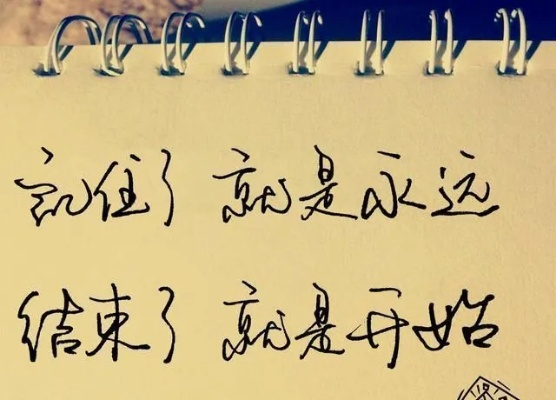 记住了 就是永远
结束了 就是开始